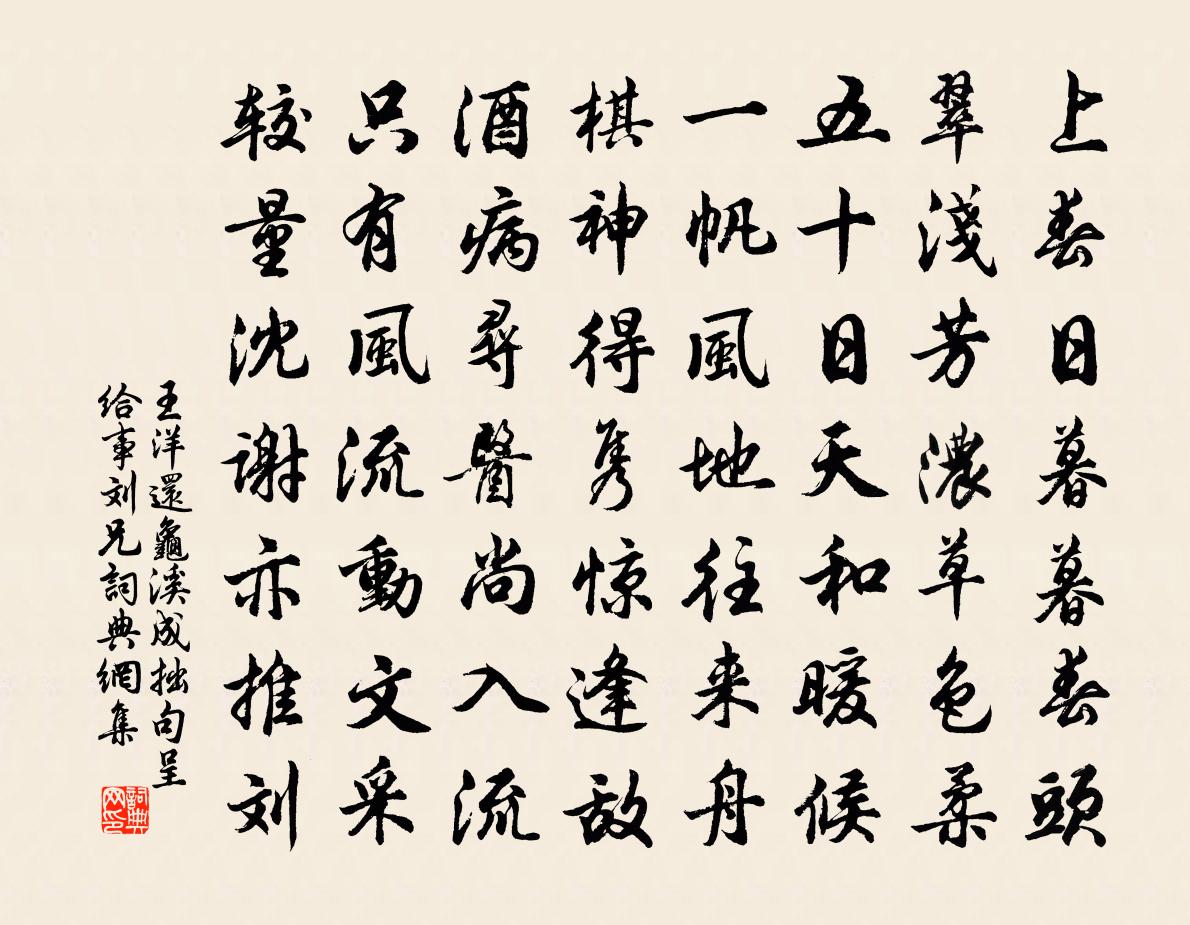 上春日暮暮春頭
翠淺芳濃草色柔
五十日天和暖候
一帆風地往来舟
棋神得隽惊逢敌
酒病尋醫尚入流
只有風流動文采
较量沈谢亦推刘
王洋還龜溪成拙句呈
给事刘兄詞典網集
詞典网印